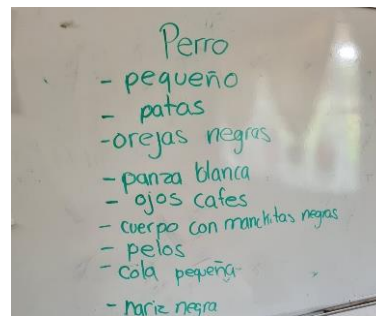 Perro
- pequeño
- patas
-orejas negras
- panza blanca
- ojos cafes
- cuerpo con manchitas negras
- pelos
- cola pequeña
- nariz negra